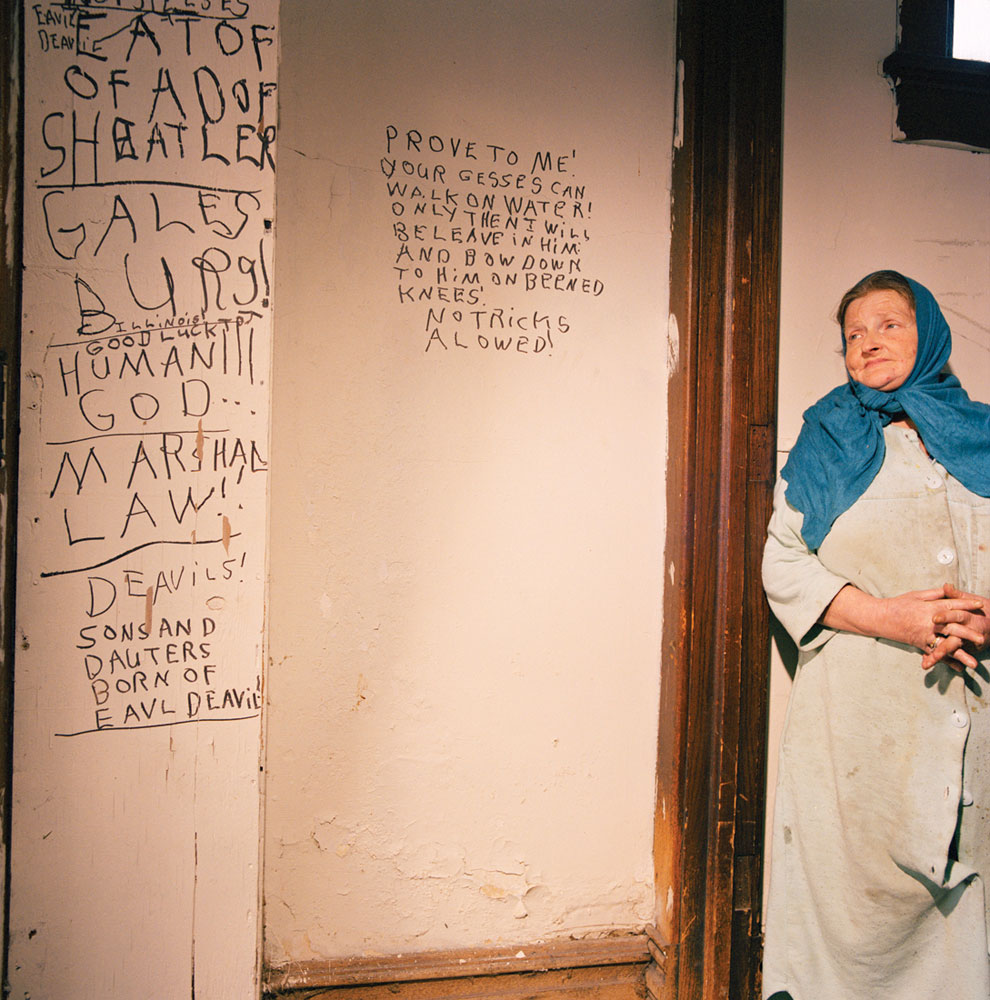 EAVIL
DEAVIE
EATOF
OF ADOF
SHEATLER
GALES
BURG!
ILLINOIS
GOOD LUCK TO
HUMAN!!!
GOD...
MARSHAL
LAW!!
DEAVILS!
SONS AND
DAUTERS
BORN OF
EAVL DEAVIE
PROVE TO ME!
YOUR GESSES CAN
WALK ON WATER!
ONLY THEN I WILL
BELEAVE IN HIM.
AND BOW DOWN
TO HIM ON BEENED
KNEES.
NO TRICKS
ALOWED!